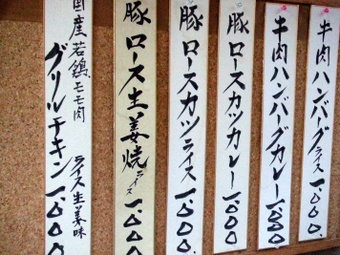 牛肉ハンバーグライス 一、〇〇〇
牛肉ハンバーグカレー 一、〇〇〇
豚ロースカツカレー 一、〇〇〇
豚ロースカツライス 一、〇〇〇
豚ロース生姜焼ライス 一、〇〇〇
国産若鶏モモ肉
グリルチキン ライス 生姜味 一、〇〇〇